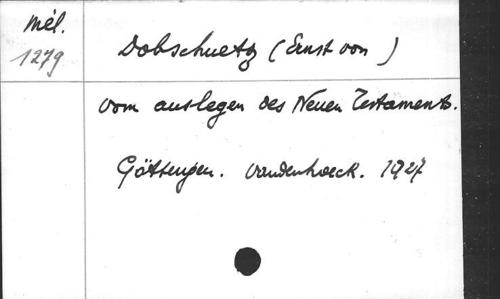 Mél.
1279
Dobschuetz (Ernst von)
Vom auslegen des Neuen Testaments.
Göttengen. Vandenhoeck. 1927